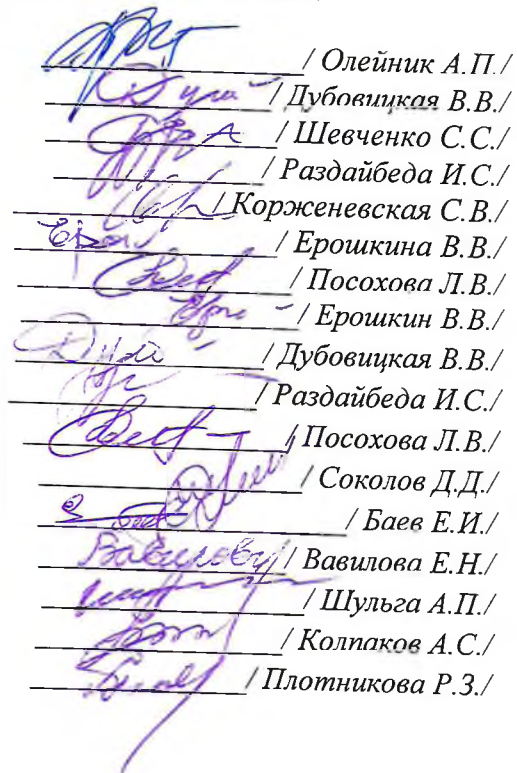 / Олейник А.П./
/ Дубовицкая В.В./
/ Шевченко С.С./
/ Раздайбеда И.С./
/ Корженевская С.В./
/ Ерошкина В.В./
/ Посохова Л.В./
/ Ерошкин В.В./
/ Дубовицкая В.В./
/ Раздайбеда И.С./
/ Посохова Л.В./
/ Соколов Д.Д./
/ Баев Е.И./
/ Вавилова Е.Н./
/ Шульга А.П./
/ Колпаков А.С./
/ Плотникова Р.З./